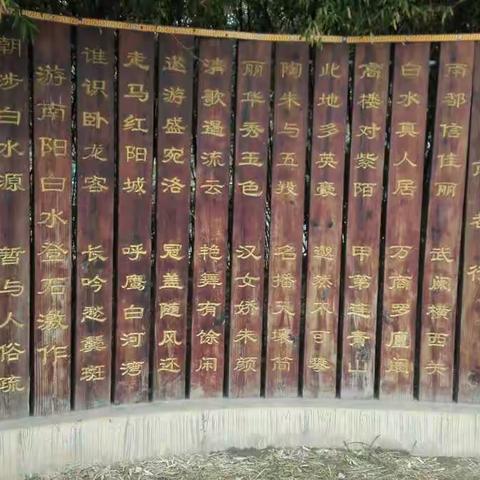 南都信佳丽 武阙横西关
白水真人居 万商罗廛闤
高楼对紫陌 甲第连青山
此地多英豪 邈然不可攀
陶朱与五羖 名播天壤间
丽华秀玉色 汉女娇朱颜
清歌遏流云 艳舞有馀闲
遨游盛宛洛 冠盖随风还
走马红阳城 呼鹰白河湾
谁识卧龙客 长吟愁鬓斑
游南阳白水登石激作
朝涉白水源 暂与人俗疏